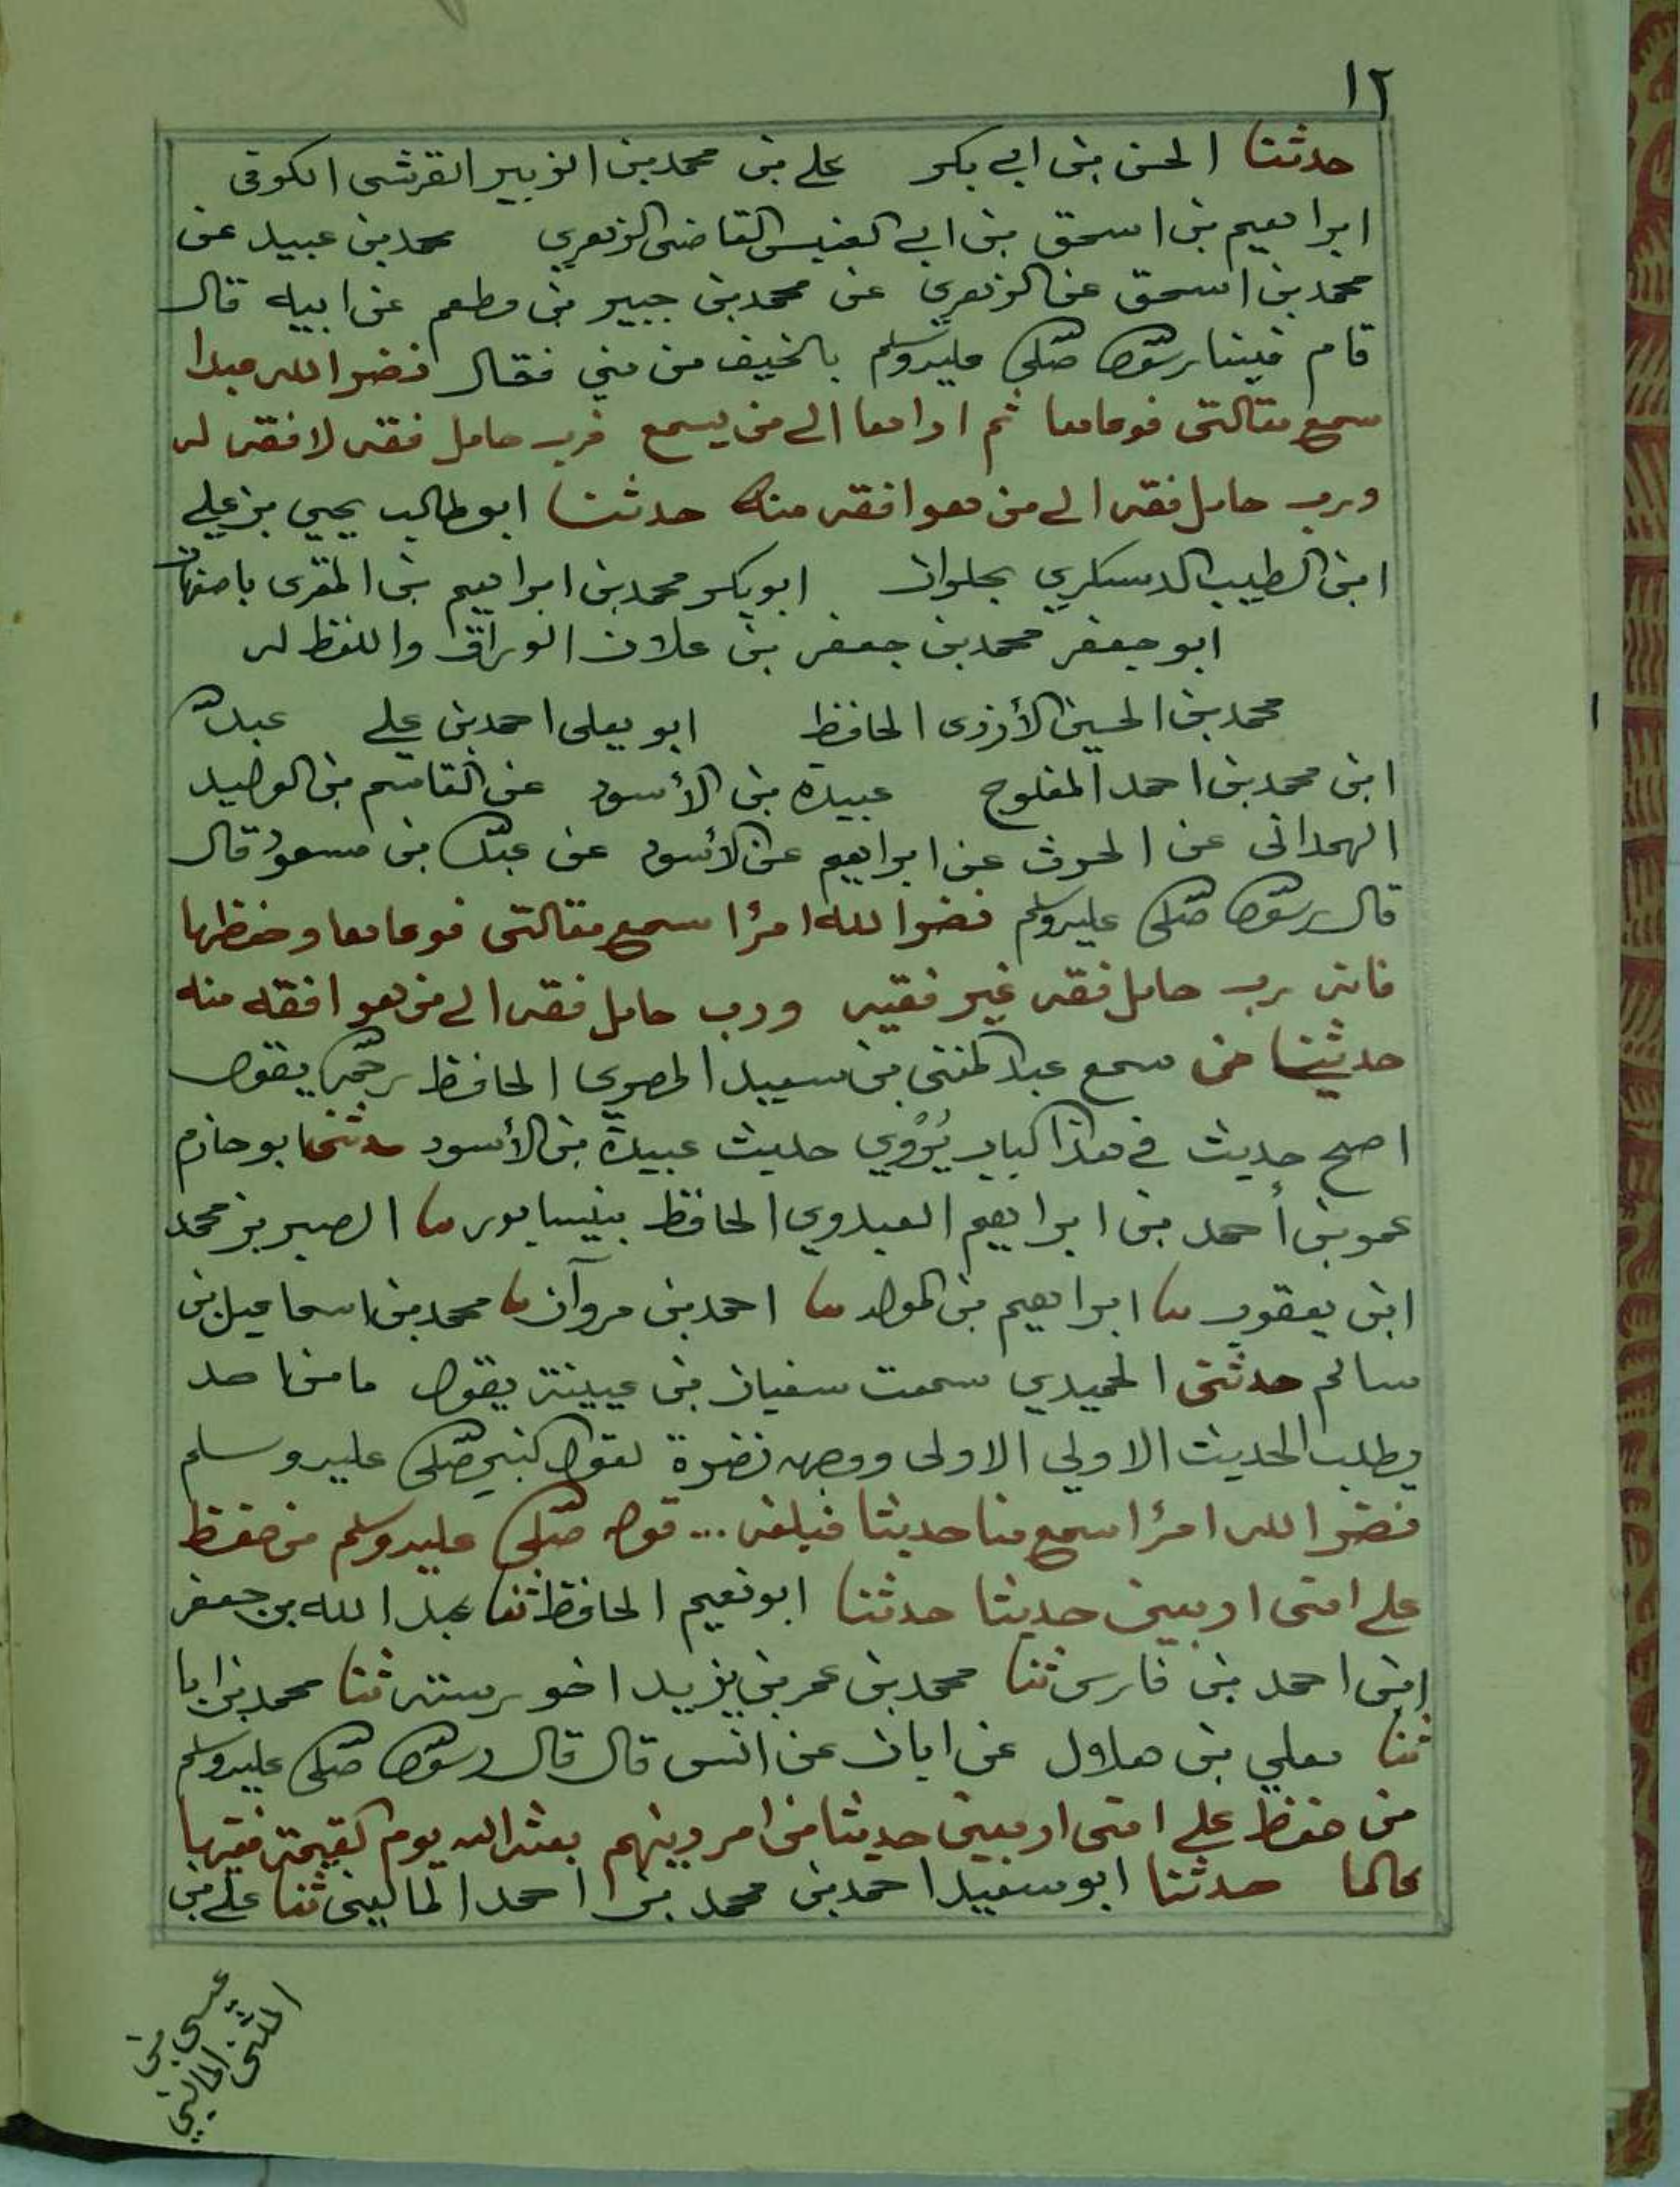 ١٢
حدثنا الحسن بن ابي بكر علي بن محمد بن الزبير القرشي الكوفي
ابراهيم بن اسحق بن ابي العنبس القاضي الزهري محمد بن عبيد عن
محمد بن اسحق عن الزهري عن محمد بن جبير بن مطعم عن ابيه قال
قام فينا رسول الله صلى عليه وسلم بالخيف من مني فقال نضر الله عبدا
سمع مقالتي فوعاها ثم اداها الى من يسمع فرب حامل فقه لا فقه له
ورب حامل فقه الى من هو افقه منه حدثنا ابو طالب يحيي بن علي
ابن الطيب الدسكري بحلوان ابو بكر محمد بن ابراهيم بن المقرى باصفهان
ابو جعفر محمد بن جعفر بن علان الوراق واللفظ له
محمد بن الحسين الأزدى الحافظ ابو يعلى احمد بن علي عبد الله
ابن محمد بن احمد المفلوج عبيدة بن الأسود عن القاسم بن الوليد
الهمدانى عن الحرث عن ابراهيم عن الأسود عن عبد الله بن مسعود قال
قال رسول الله صلى عليه وسلم نضر الله امرأ سمع مقالتي فوعاها وحفظها
فانه رب حامل فقه غير فقيه ورب حامل فقه الى من هو افقه منه
حدثنا من سمع عبد الغني بن سعيد المصري الحافظ رحمه الله يقول
اصح حديث في هذا الباب يُرْوي حديث عبيدة بن الأسود حدثنى ابو حازم
عمر بن أحمد بن ابراهيم العبدوي الحافظ بنيسابور نا النصر بن محمد
ابن يعقوب نا ابراهيم بن المولد نا احمد بن مروآن نا محمد بن اسماعيل بن
سالم حدثني الحميدي سمعت سفيان بن عيينة يقول ما من احد
يطلب الحديث الاولي الاولى ووجهه نضرة لقول النبي صلى عليه وسلم
نضر الله امرأ سمع منا حديثا فبلغه ... قوله صلى عليه وسلم من حفظ
على امتى اربعين حديثا حدثنا ابو نعيم الحافظ ثنا عبد الله بن جعفر
ابن احمد بن فارس ثنا محمد بن عمر بن يزيد اخو رسته ثنا محمد بن ابا
ثنا معلي بن هلال عن ابان عن انس قال قال رسول الله صلى عليه وسلم
من حفظ على امتى اربعين حديثا من امر دينهم بعثه الله يوم القيمة فقيها
عالما حدثنا ابو سعيد احمد بن محمد بن احمد الماليني ثنا علي بن
عيسى بن
المثنى الماليني